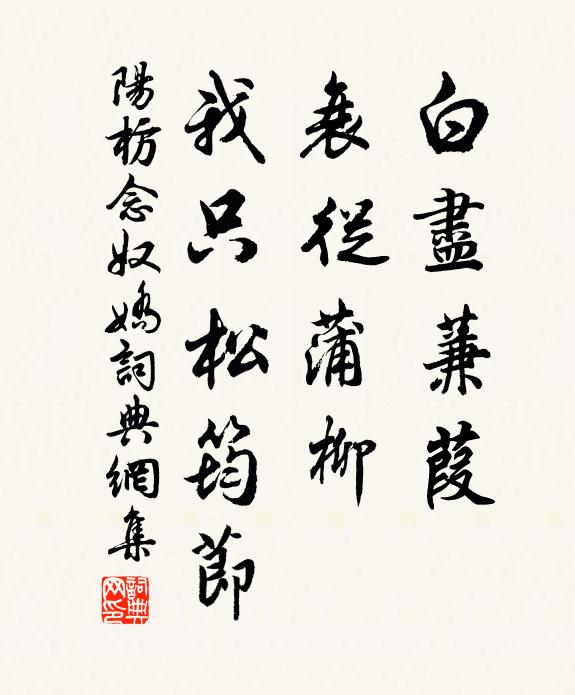 白盡蒹葭
衰從蒲柳
我只松筠節
陽枋念奴嬌詞典網集
詞典網印